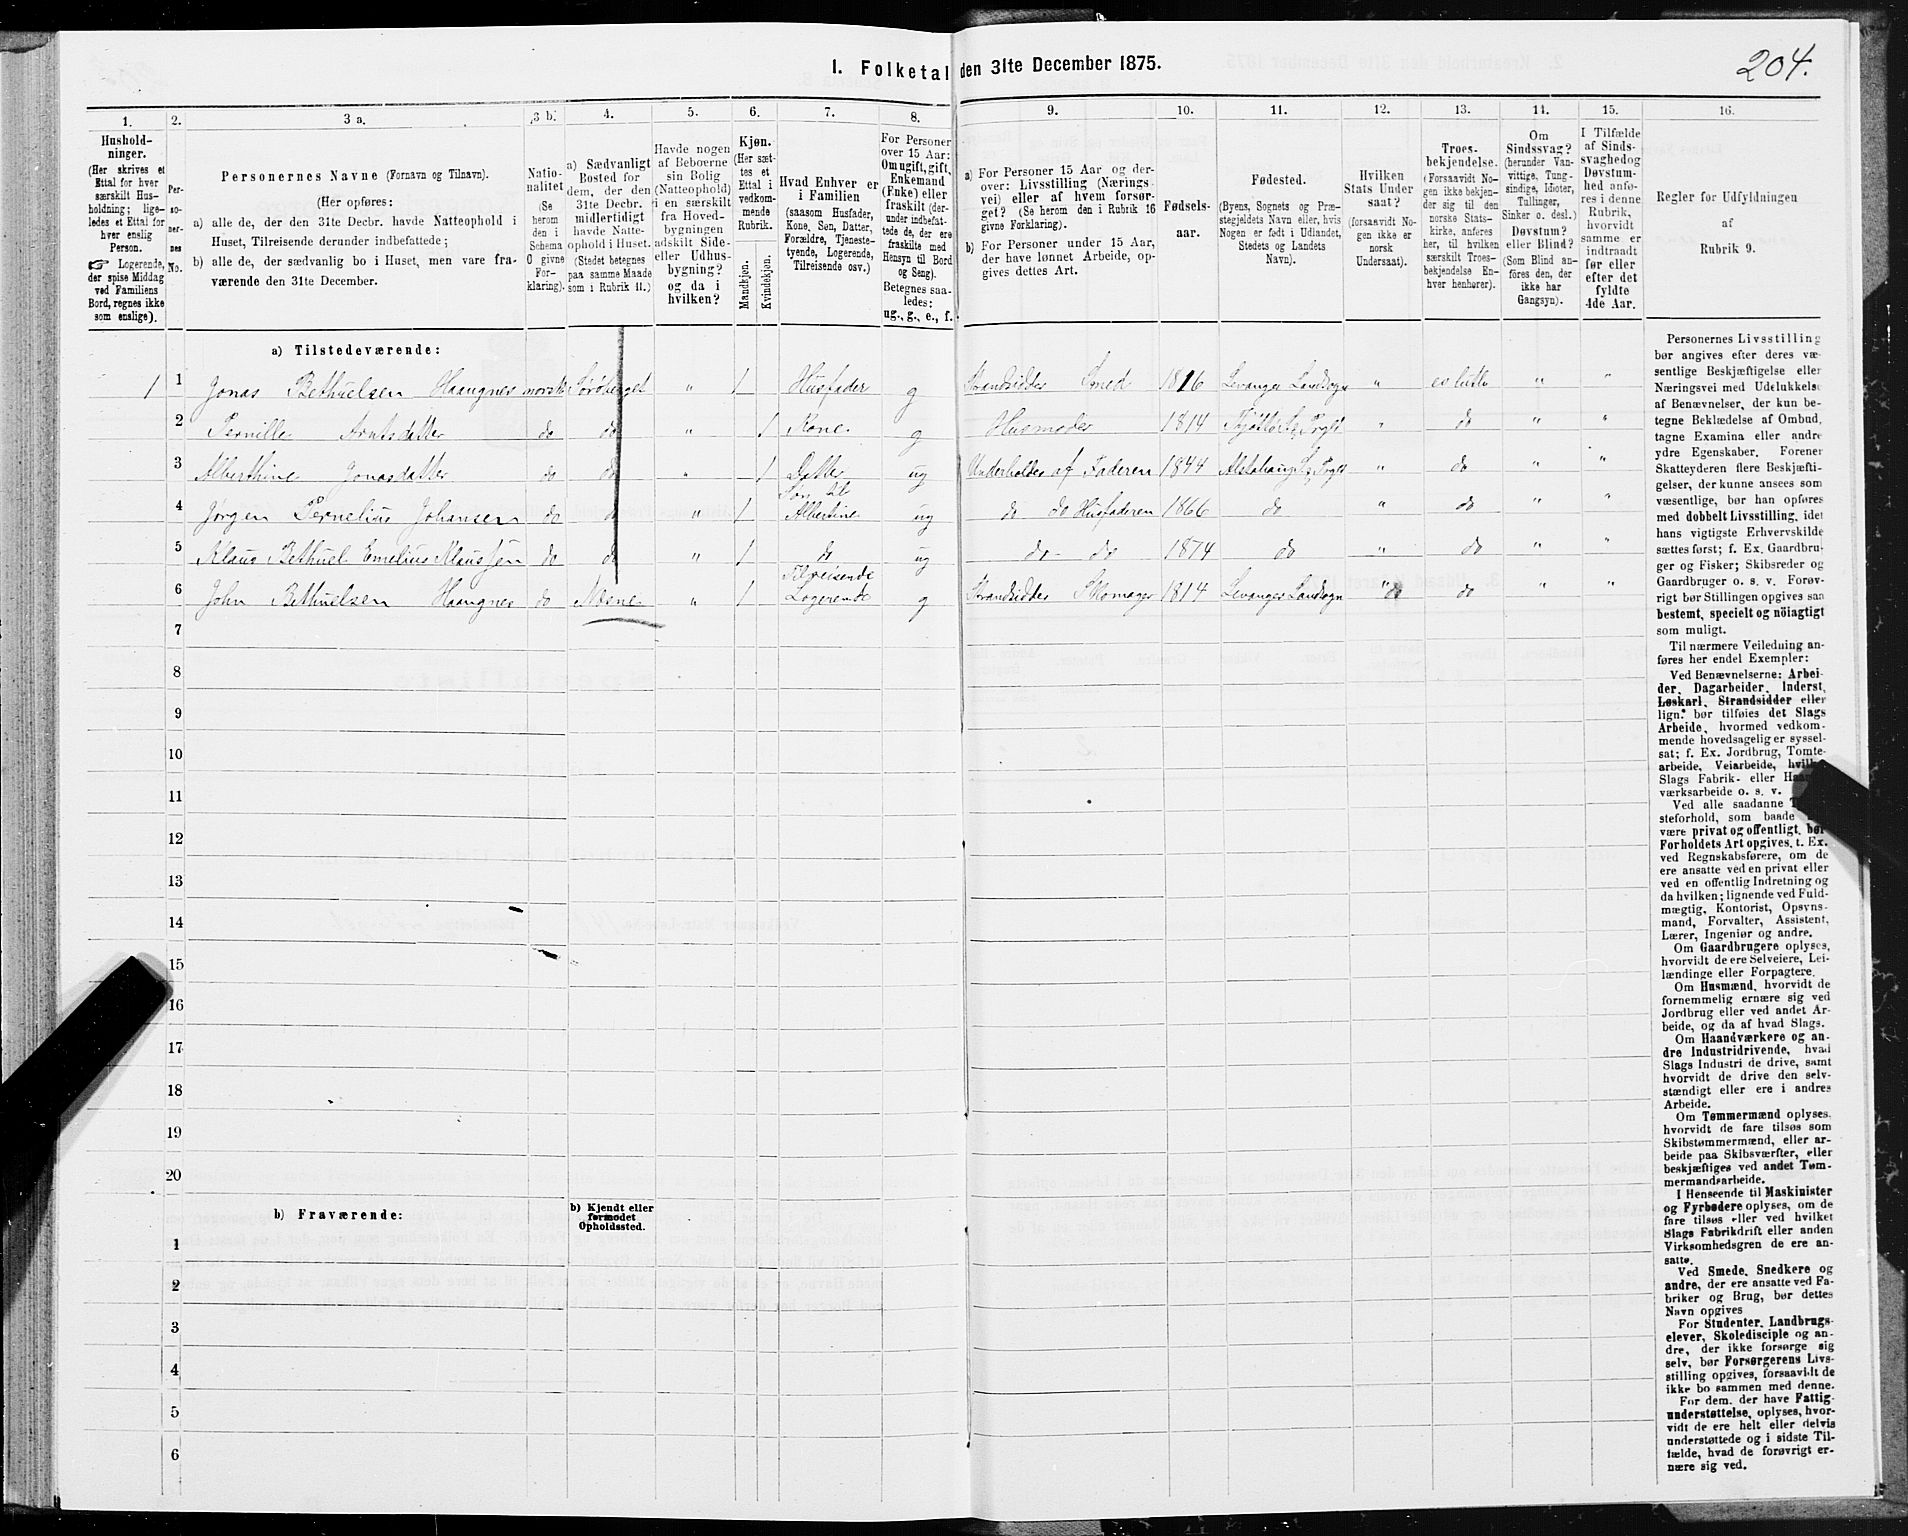 204.
1. Folketal den 31te December 1875.
1. 2. 3 a. 3 b. 4. 5. 6. 7. 8. 9. 10. 11. 12. 13. 14. 15. 16.
Husholdninger.
(Her skrives et
Ettal for hver
særskilt Husholdning;
ligeledes et Ettal for
hver enslig
Person.
☞ Logerende,
der spise Middag
ved Familiens
Bord, regnes ikke
som enslige).
Personernes
No.
Personernes Navne (Fornavn og Tilnavn).
(Her opføres:
a) alle de, der den 31te Decbr. havde Natteophold i
Huset, Tilreisende derunder indbefattede;
b) alle de, der sædvanlig bo i Huset, men vare fraværende
den 31te December.
Nationalitet
(Se
herom
den i
Schema
O givne
Forklaring).
a) Sædvanligt
Bosted for
dem, der den
31te Decbr.
midlertidigt
havde Natteophold
i Huset.
(Stedet betegnes
paa samme Maade
som i Rubrik 11.)
Havde nogen
af Beboerne
sin Bolig
(Natteophold)
i en særskilt
fra Hovedbygningen
adskilt Side-
eller Udhusbygning?
og da i
hvilken?
Kjøn.
(Her sættes
et
Ettal i
vedkommende
Rubrik.
Mandkjøn.
Kvindekjøn.
Hvad Enhver er
i Familien
(saasom Husfader,
Kone, Søn, Datter,
Forældre, Tjenestetyende,
Logerende,
Tilreisende osv.)
For Personer
over 15 Aar:
Om ugift, gift,
Enkemand
(Enke) eller
fraskilt (derunder
indbefattede
de, der ere
fraskilte med
Hensyn til Bord
og Seng).
Betegnes saaledes:
ug., g., e., f.
a) For Personer 15 Aar og derover:
Livsstilling (Næringsvei)
eller af hvem forsørget?
(Se herom den i Rubrik 16
givne Forklaring).
b) For Personer under 15 Aar,
der have lønnet Arbeide, opgives
dettes Art.
Fødselsaar.
Fødested.
(Byens, Sognets og Præstegjeldets
Navn eller, hvis
Nogen er født i Udlandet,
Stedets og Landets
Navn).
Hvilken
Stats Undersaat?
(forsaavidt Nogen
ikke er
norsk
Undersaat).
Troesbekjendelse.
(Forsaavidt Nogen
ikke bekjender
sig til den
norske Statskirke,
anføres
her, til hvilken
særskilt Troesbekjendelse
Enhver
henhører).
Om
Sindssvag?
(herunder Vanvittige,
Tungsindige,
Idioter,
Tullinger,
Sinker o. desl.)
Døvstum?
eller Blind?
(Som Blind anføres
den, der
ikke har
Gangsyn).
I Tilfælde
af Sindssvaghed
og
Døvstumhed
anføres
i denne
Rubrik,
hvorvidt
samme er
indtraadt
før eller
efter det
fyldte
4de Aar.
Regler for Udfyldningen
af
Rubrik 9.
a) Tilstedeværende:
1 1 Jonas Bethuelsen Haangnes norsk " 1 Husfader g Strandsidder Smed 1816 Levanger Landsogn " " "
2 Pernille Arntsdatter do do " 1 Kone g Husmoder 1814 " do " "
3 Alberthine Jonasdatter do do " 1 Datter ug Underholdes af Faderen 1844 " do " "
4 Jørgen Pernelius Johansen do do " 1 Søn til Albertine ug do do Husfaderen 1866 do " do " "
5 Klaus Bethuel Emelius Klaussen do do " 1 do ug do do 1874 do " do " "
6 John Bethuelsen Haangnes do Næsne " 1 Tilreisende Logerende g Strandsidder Skomager 1814 Levanger Landsogn " do do " "
7
8
9
10
11
12
13
14
15
16
17
18
19
20
b) Fraværende:
b) Kjendt eller
formodet
Opholdssted.
1
2
3
4
5
6
Personernes Livsstilling
bør angives efter deres væsentlige
Beskjæftigelse eller
Næringsvei med Udelukkelse
af Benævnelser, der kun betegne
Beklædelse af Ombud,
tagne Examina eller andre
ydre Egenskaber. Forener
Skatteyderen flere Beskjæftigelser,
der kunne ansees som
væsentlige, bør han opføres
med dobbelt Livsstilling, idet
hans vigtigste Erhvervskilde
sættes først; f. Ex. Gaardbruger
og Fisker; Skibsreder og
Gaardbruger o. s. v. Forøvrigt
bør Stillingen opgives saa
bestemt, specielt og nöiagtigt
som muligt.
Til nærmere Veiledning anføres
her endel Exempler:
Ved Benævnelserne: Arbeider,
Dagarbeider, Inderst,
Løskarl, Strandsidder eller
lign. bør tilføies det Slags
Arbeide, hvormed vedkommende
hovedsagelig er sysselsat;
f. Ex. Jordbrug, Tomtearbeide,
Veiarbeide, hvilket
Slags Fabrik- eller
værksarbeide o. s. v.
Ved alle saadanne
steforhold, som baade
være privat og offentligt, bør
Forholdets Art opgives, t. Ex.
ved Regnskabsførere, om de
ere ansatte ved en privat eller
ved en offentlig Indretning og
da hvilken; lignende ved Fuldmægtig,
Kontorist, Opsynsmand,
Forvalter, Assistent,
Lærer, Ingeniør og andre.
Om Gaardbrugere oplyses,
hvorvidt de ere Selveiere, Leilændinge
eller Forpagtere.
Om Husmænd, hvorvidt de
fornemmelig ernære sig ved
Jordbrug eller ved andet Arbeide,
og da af hvad Slags.
Om Haandværkere og andre
Industridrivende, hvad
Slags Industri de drive, samt
hvorvidt de drive den selvstændigt
eller ere i andres
Arbeide.
Om Tømmermænd oplyses,
hvorvidt de fare tilsøs som
Skibstømmermænd, eller arbeide
paa Skibsværfter, eller
beskjæftiges ved andet Tømmermandsarbeide.
I Henseende til Maskinister
og Fyrbødere oplyses, om de
fare tilsøs eller ved hvilket
Slags Fabrikdrift eller anden
Virksomhedsgren de ere ansatte.
Ved Smede, Snedkere og
andre, der ere ansatte ved Fabriker
og Brug, bør dettes
Navn opgives
For Studenter, Landbrugselever,
Skoledisciple og andre,
der ikke forsørge sig
selv, bør Forsørgerens Livsstilling
opgives, forsaavidt de
ikke bo sammen med denne.
For dem, der have Fattigunderstøttelse,
oplyses, hvorvidt
de ere helt eller delvis
understøttede og i sidste Tilfælde,
hvad de forøvrigt ernære
sig ved.